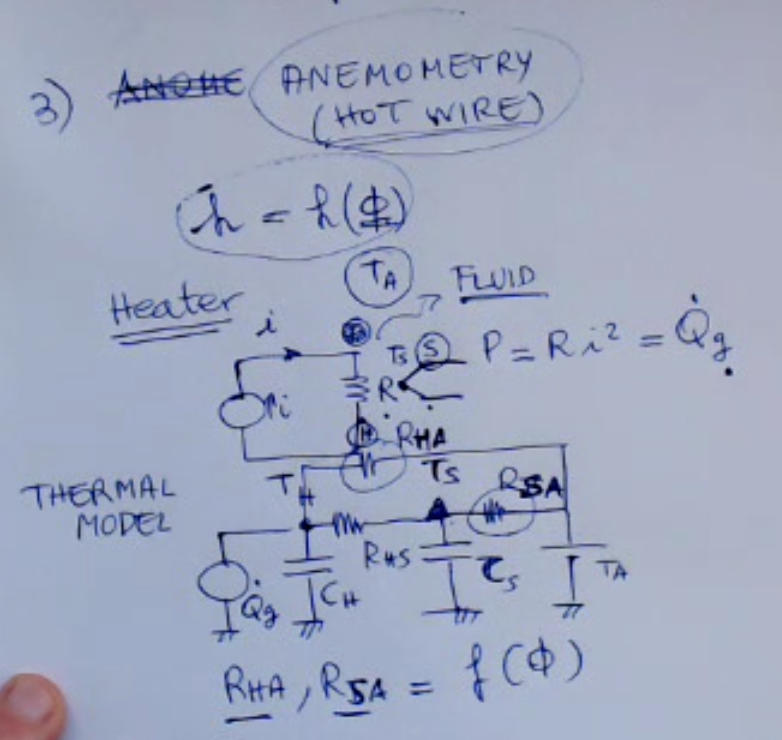 3) ANOHE ANEMOMETRY
(HOT WIRE)
h = h(ϕ)
TA
FLUID
Heater
i
TS S P = R i² = Q̇g
i
R
H RHA
THERMAL
MODEL
TH
TS
RSA
RHS
CS
TA
Q̇g
CH
RHA, RSA = f(ϕ)